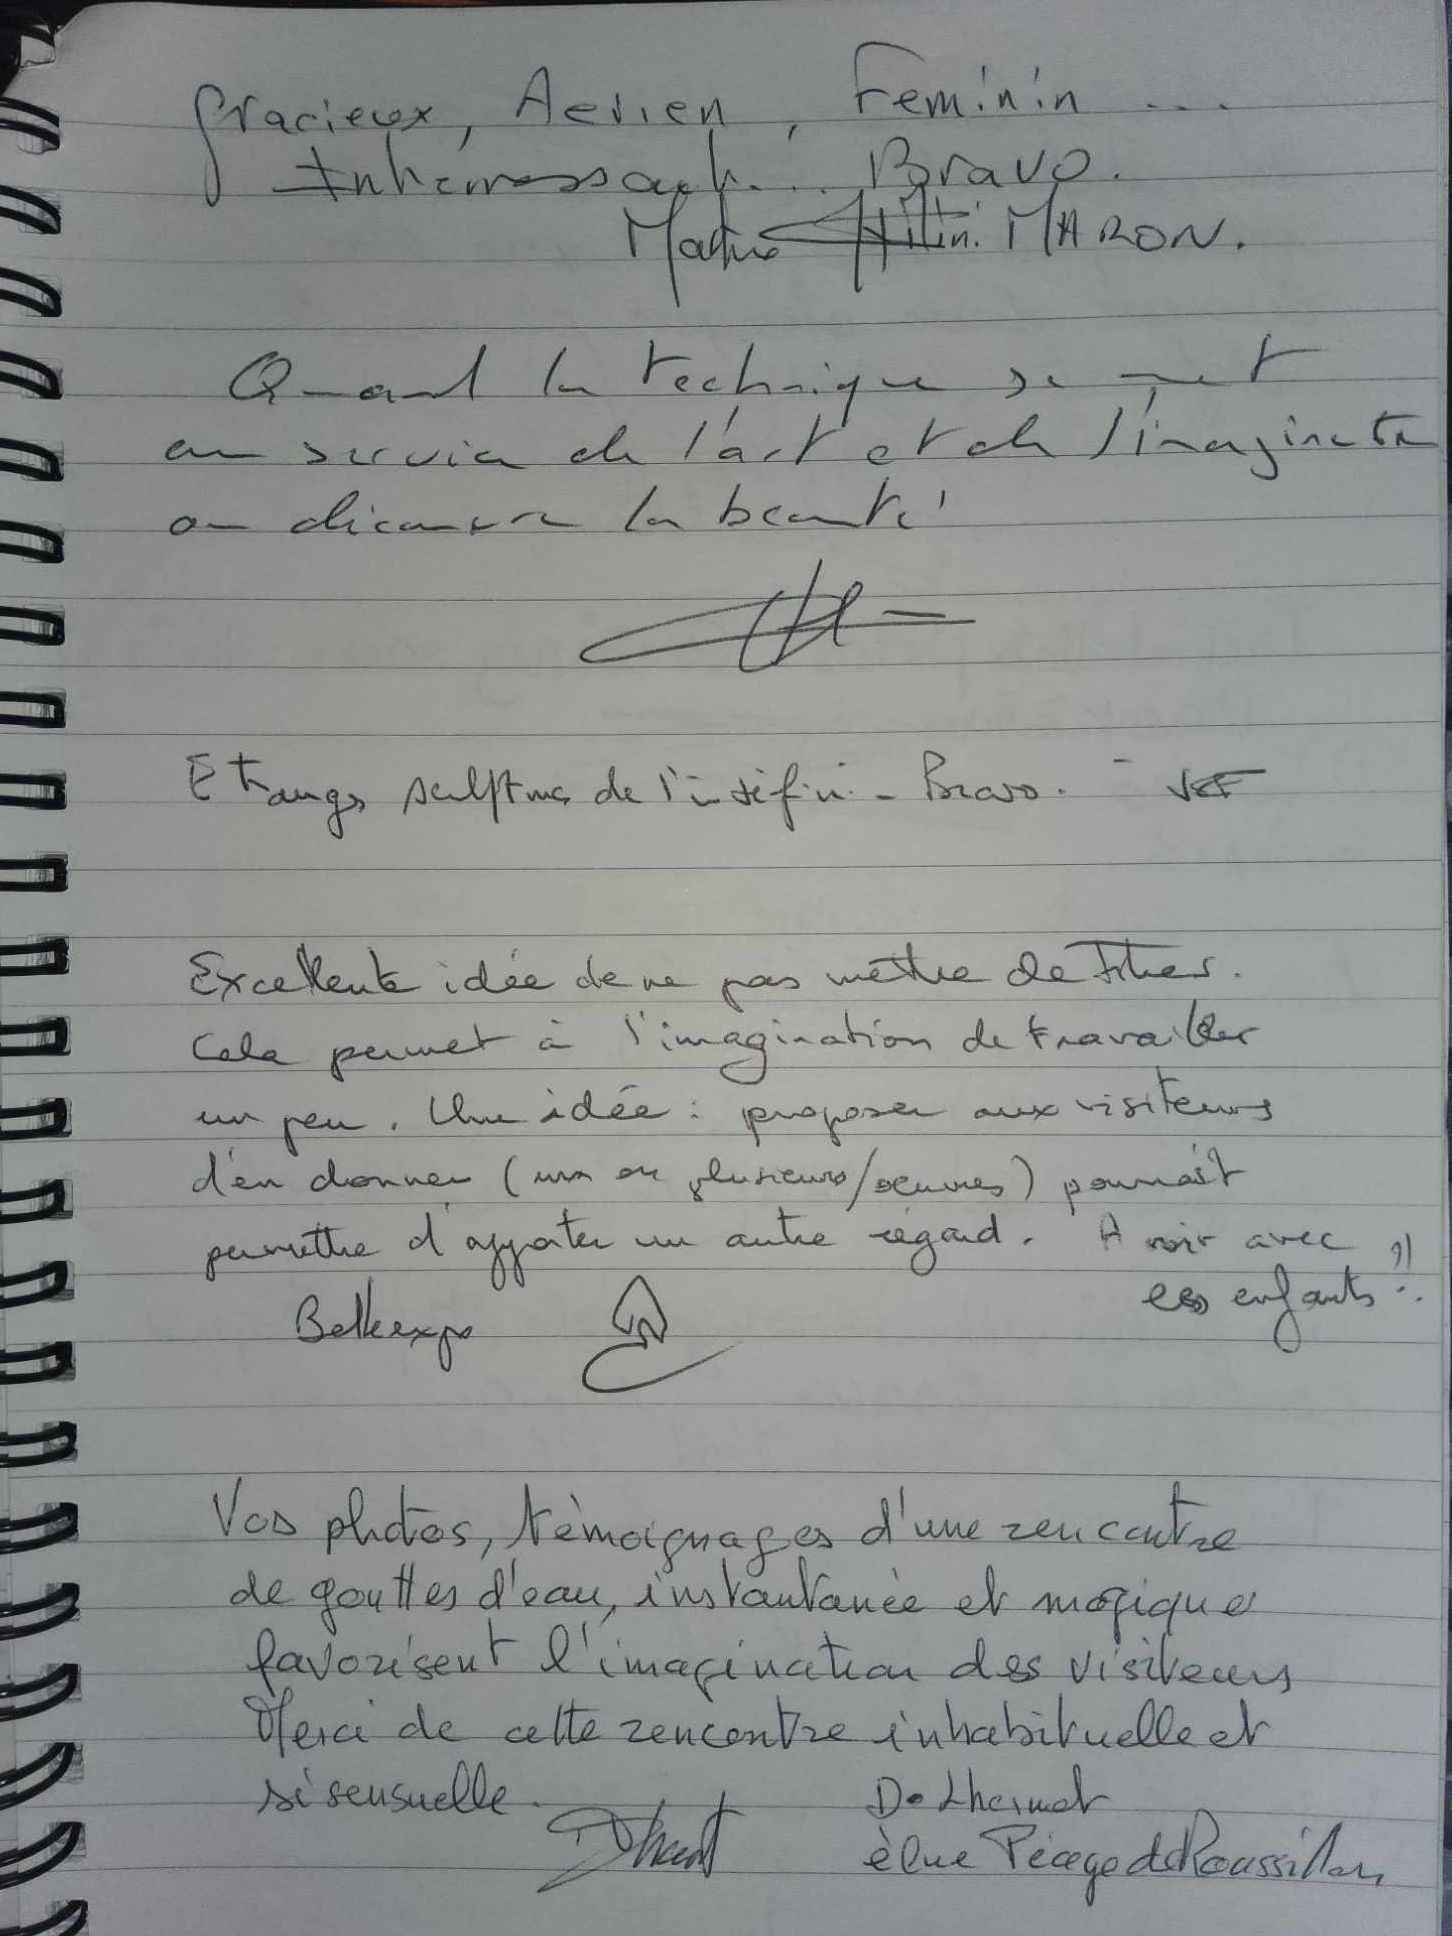 Gracieux, Aerien, Feminin ...
Intéressant... Bravo.
MARON.
Quand la technique se met
au service de l'art et de l'imagination
on découvre la beauté !
Etranges sculptures de l'indéfini - Bravo. -
Excellente idée de ne pas mettre de titres.
Cela permet à l'imagination de travailler
un peu. Une idée : proposer aux visiteurs
d'en donner (un ou plusieurs/oeuvres) pourrait
permettre d'apporter un autre regard. A voir avec
les enfants !!
Belle expo
Vos photos, témoignages d'une rencontre
de gouttes d'eau, instantanée et magique
favorisent l'imagination des visiteurs
Merci de cette rencontre inhabituelle et
si sensuelle.
D. Lhermet
élue Péage de Roussillon